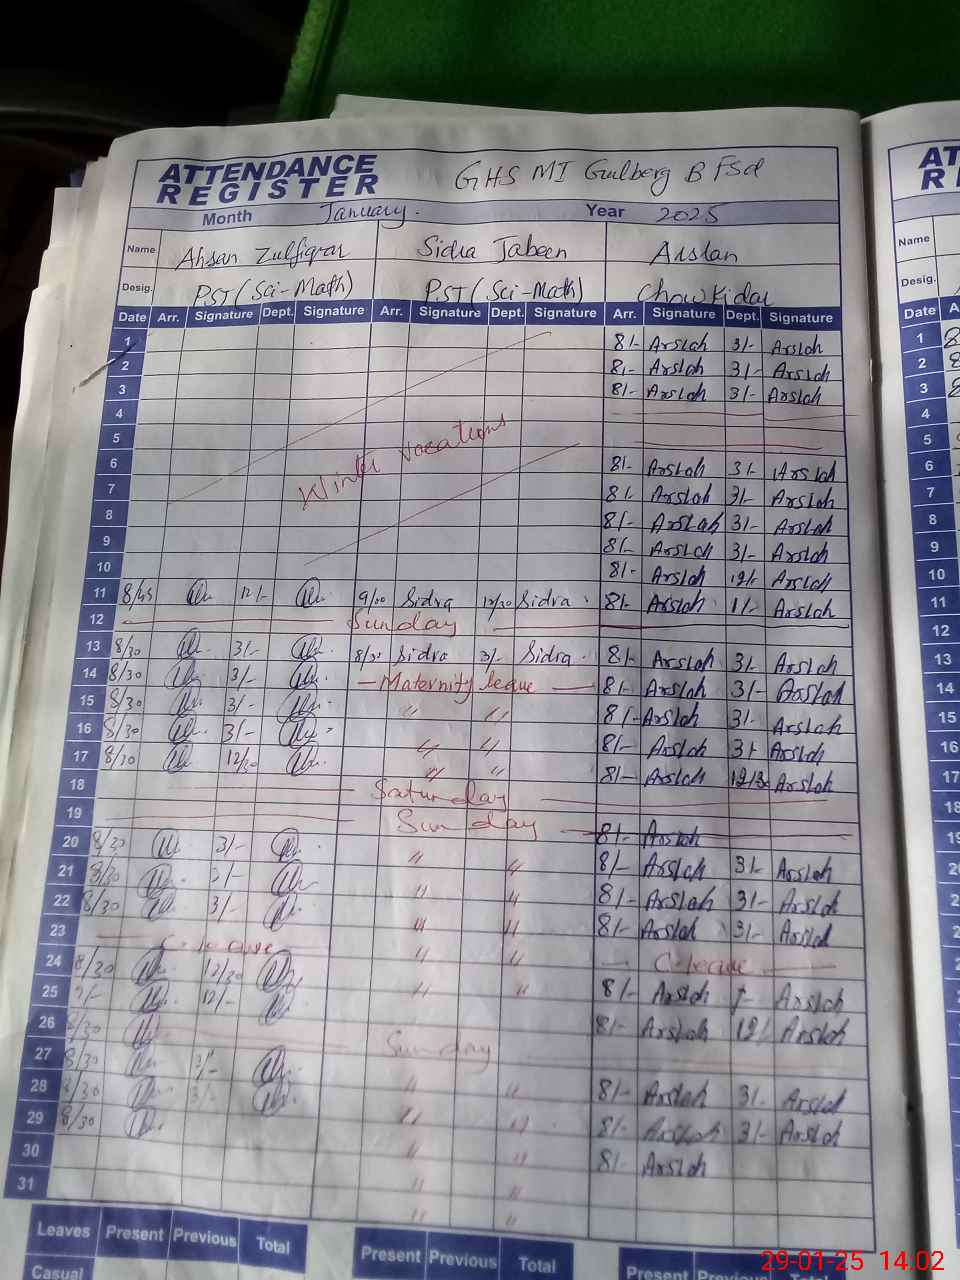 ATTENDANCE REGISTER GHS MI Gulberg B Fsd
Month January. Year 2025
Name Ahsan Zulfiqar Sidra Jabeen Arslan
Desig. PST (Sci-Math) PST (Sci-Math) Chowkidar
Date Arr. Signature Dept. Signature Arr. Signature Dept. Signature Arr. Signature Dept. Signature
1 8/- Arslah 3/- Arslah
2 8/- Arslah 3/- Arslah
3 8/- Arslah 3/- Arslah
4
5
Winter vacations
6 8/- Arslah 3/- Arslah
7 8/- Arslah 3/- Arslah
8 8/- Arslah 3/- Arslah
9 8/- Arslah 3/- Arslah
10 8/- Arslah Arslah
11 8/45 12/- 9/00 Sidra 12/30 Sidra. 8/- Arslah 1/- Arslah
12 Sunday
13 8/30 3/- 8/30 Sidra 3/- Sidra. 8/- Arslah 3/- Arslah
14 8/30 3/- Maternity leave 8/- Arslah 3/- Arslah
15 8/30 3/- " " 8/- Arslah 3/- Arslah
16 8/30 3/- " " 8/- Arslah 3/- Arslah
17 8/30 12/30 " " 8/- Arslah Arslah
18 Saturday
19 Sunday 8/- Arslah
20 8/30 3/- " " 8/- Arslah 3/- Arslah
21 8/30 " " 8/- Arslah 3/- Arslah
22 8/30 3/- " " 8/- Arslah 3/- Arslah
23 C. leave " " C-leave
24 8/30 12/30 " " 8/- Arslah Arslah
25 9/- 12/- 8/- Arslah 12/- Arslah
26 8/30 Sunday
27 8/30 " " 8/- Arslah 3/- Arslah
28 8/30 " " 8/- Arslah 3/- Arslah
29 8/30 " " 8/- Arslah
30 " "
31 " "
Leaves Present Previous Total Present Previous Total Present Previous Total
Casual
AT
Name
Desig.
Date A
1
2
3
4
5
6
7
8
9
10
11
12
13
14
15
16
17
18
19
29-01-25 14.02